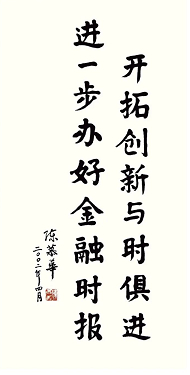 开拓创新与时俱进
进一步办好金融时报
陈慕华
二〇〇二年四月